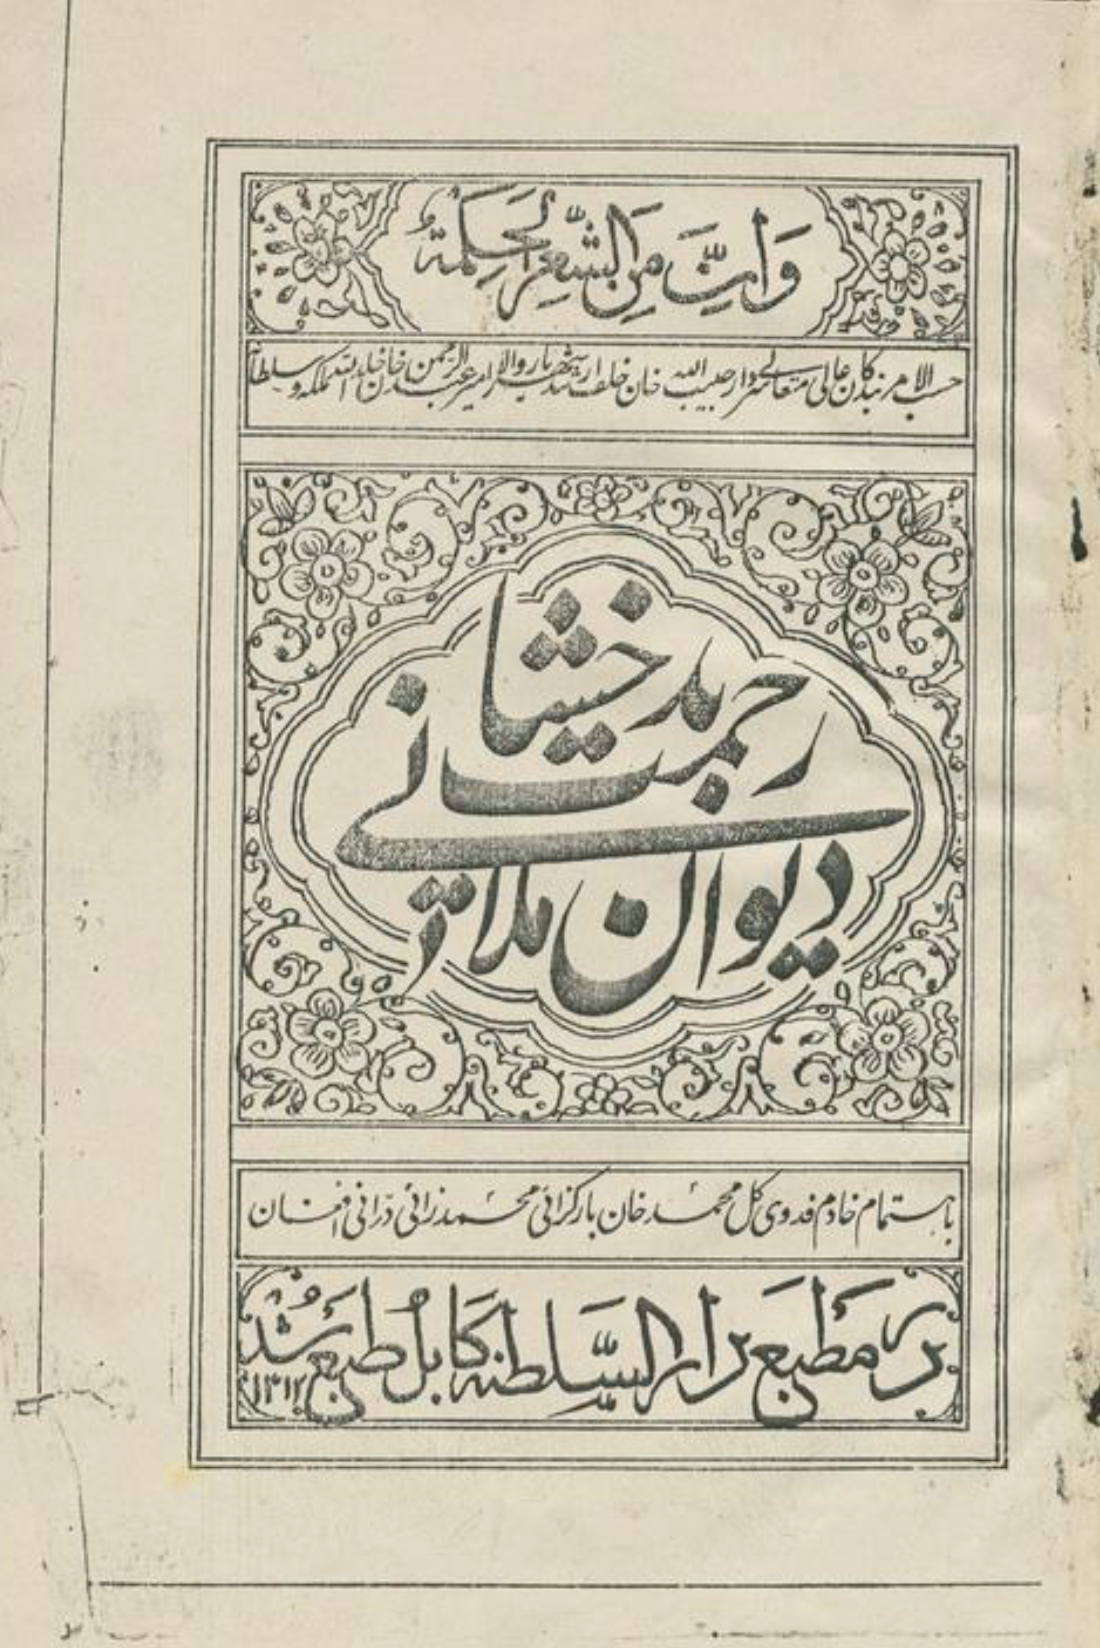 وَاِنَّ مِنَ الشِّعرِ لَحِکْمَةٌ
حسب الامر بندگان عالی متعالی سردار حبیب الله خان خلف ارشد شهریار والا امیر عبدالرحمن خان خلد الله ملکه و سلطانه
دیوان ملا رحمت بدخشانی
باهتمام خادم فدوی گل محمد خان بارکزائی محمد زائی درانی افغان
در مطبع دار السلطنه کابل طبع شد ۱۳۱۲